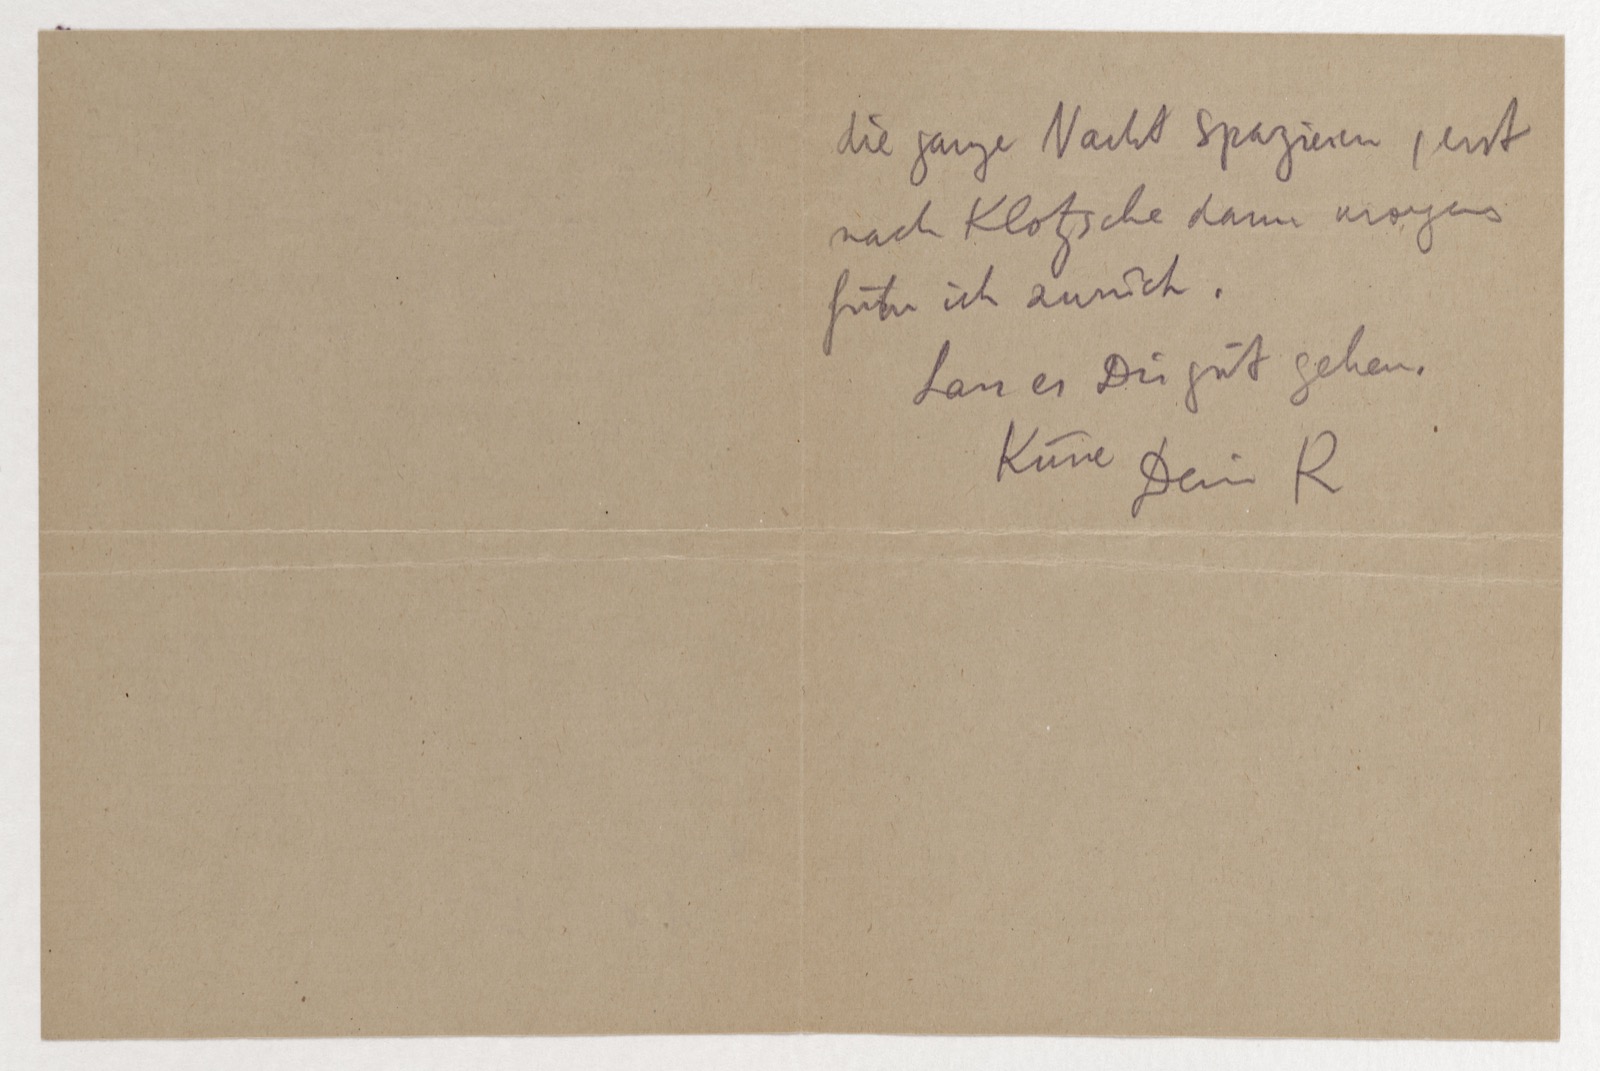 die ganze Nacht spazieren, erst
nach Klotzsche dann morgens
fuhr ich zurück.
Lass es Dir gut gehen.
Küsse Dein R